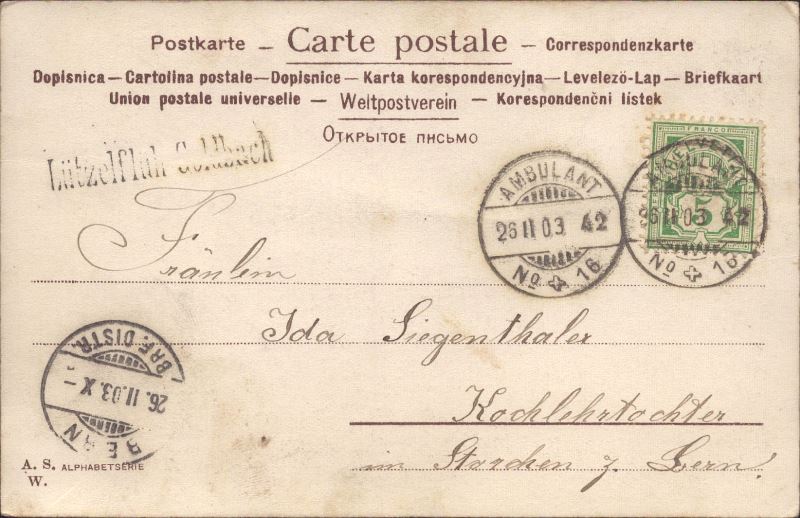 Postkarte – Carte postale – Correspondenzkarte
Dopisnica — Cartolina postale — Dopisnice — Karta korespondencyjna — Levelezö-Lap — Briefkaart
Union postale universelle – Weltpostverein – Korespondenčni lístek
Открытое письмо
Lützelflüh-Goldbach
FRANCO
HELVETIA
5
AMBULANT
26 II 03 42
No 16
AMBULANT
26 II 03 42
No 16
Fräulein
Ida Siegenthaler
Kochlehrtochter
im Starchen z. Bern.
BRF. DISTR.
26. II. 03. X –
BERN
A. S. ALPHABETSERIE
W.